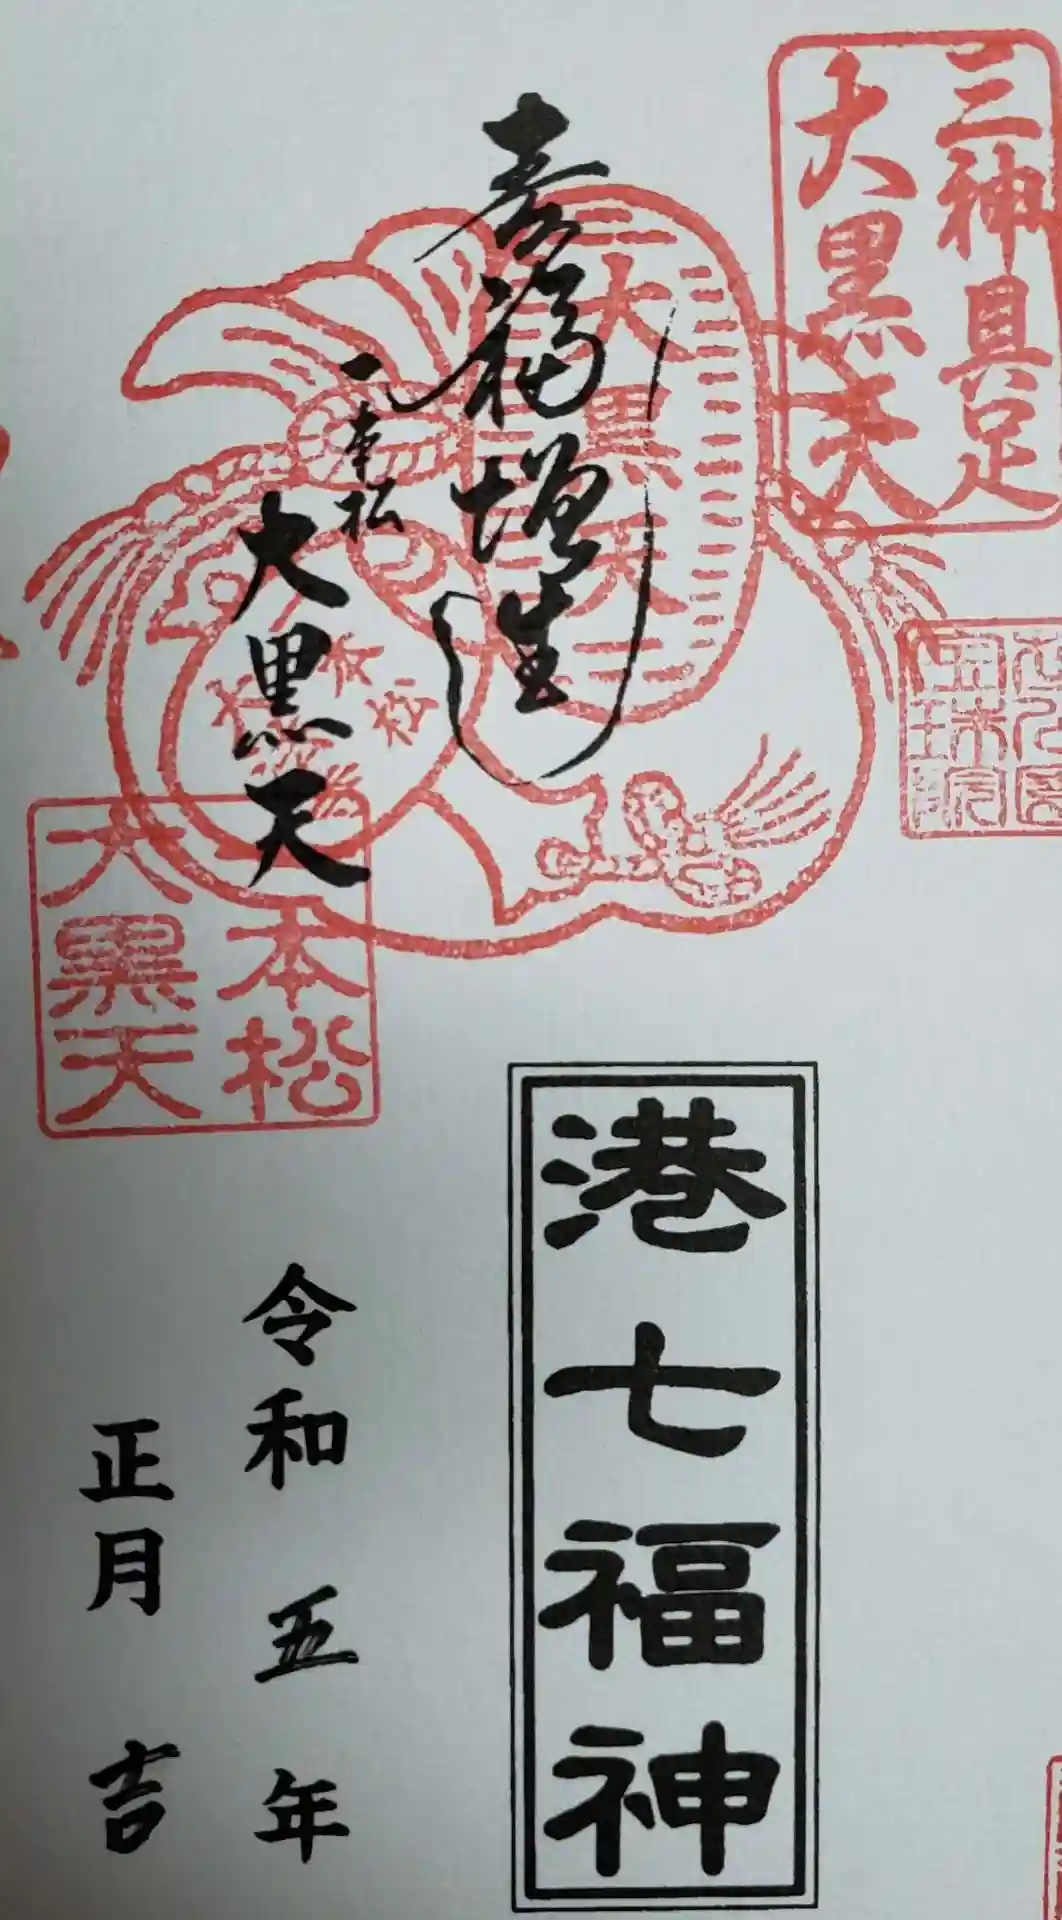 三神具足
大黒天
喜福増生
一本松
大黒天
大黒天
一本松
大黒天
港七福神
令和五年
正月吉